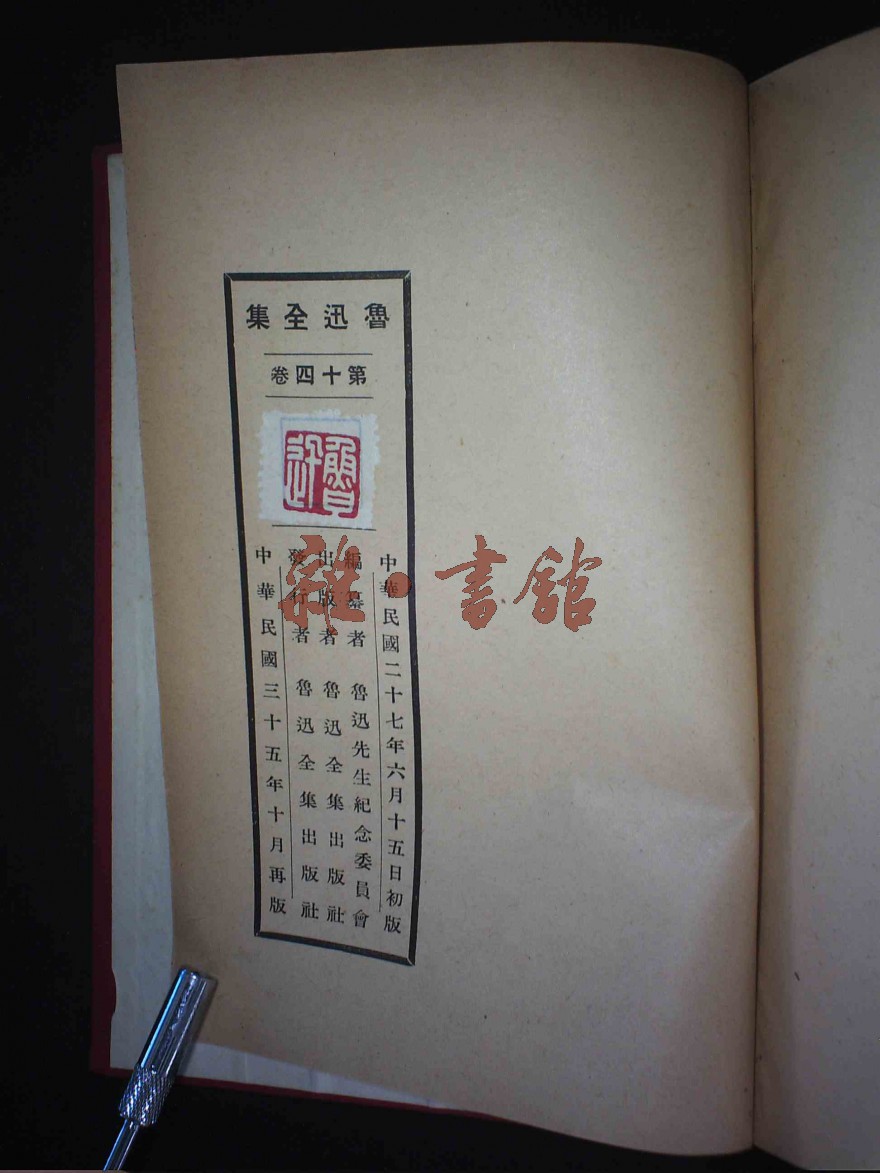 魯迅全集
第十四卷
魯迅
中華民國二十七年六月十五日初版
編纂者 魯迅先生紀念委員會
出版者 魯迅全集出版社
發行者 魯迅全集出版社
中華民國三十五年十月再版
雜·書館